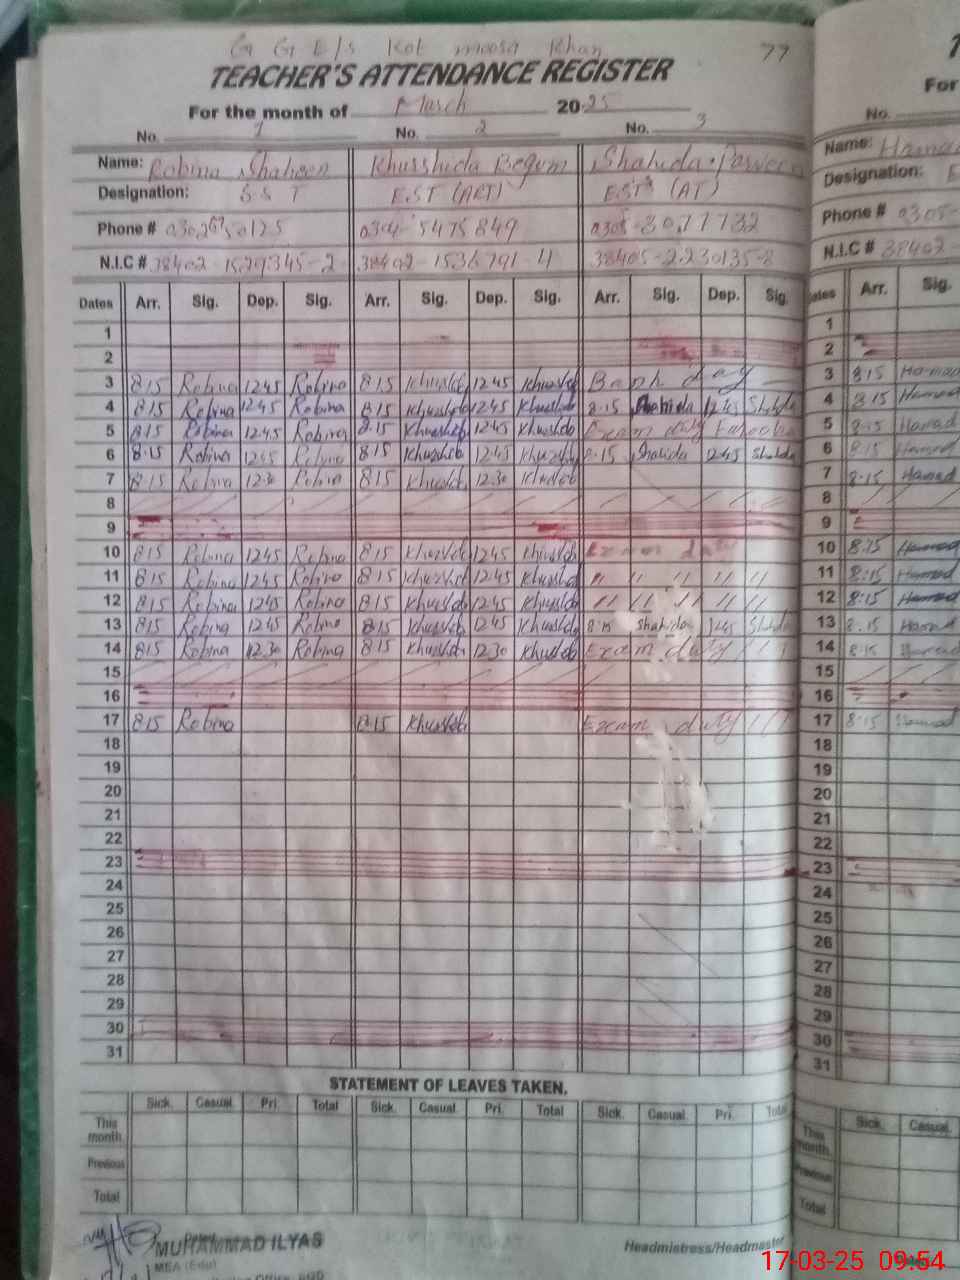 G G E/S Kot moosa Khan 77
TEACHER'S ATTENDANCE REGISTER
For the month of March 2025
No. 1 No. 2 No. 3
Name: Robina Shaheen Khurshida Begum Shahida Parveen
Designation: S.S T E.ST (ART) E.ST (AT)
Phone # 5475849
N.I.C # 38402 - 1536791-4 38405-2230135-8
Dates Arr. Sig. Dep. Sig. Arr. Sig. Dep. Sig. Arr. Sig. Dep. Sig.
1
2
3 8:15 Robina 12:45 Robina 8:15 Khurshid 12:45 Khurshid day
4 8:15 Robina 12:45 Robina 8:15 Khurshid 12:45 Khurshid 8:15 Shahida 12:45 Shahida
5 8:15 Robina 12:45 Robina 8:15 Khurshid 12:45 Khurshid Exam duty
6 8:15 Robina 12:45 Robina 8:15 Khurshid 12:45 Khurshid 8:15 Shahida 12:45 Shahida
7 8:15 Robina 12:30 Robina 8:15 Khurshid 12:30 Khurshid
8
9
10 8:15 Robina 12:45 Robina 8:15 Khurshid 12:45 Khurshid Exam duty
11 8:15 Robina 12:45 Robina 8:15 Khurshid 12:45 Khurshid " " " " " "
12 8:15 Robina 12:45 Robina 8:15 Khurshid 12:45 Khurshid " " " " " "
13 8:15 Robina 12:45 Robina 8:15 Khurshid 12:45 Khurshid 8:15 Shahida 12:45 Shahida
14 8:15 Robina 12:30 Robina 8:15 Khurshid 12:30 Khurshid Exam duty
15
16
17 8:15 Robina 8:15 Khurshid Exam duty
18
19
20
21
22
23
24
25
26
27
28
29
30
31
STATEMENT OF LEAVES TAKEN.
Sick. Casual. Pri. Total Sick. Casual. Pri. Total Sick. Casual. Pri. Total
This month.
Previous
Total
MUHAMMAD ILYAS
MEA (Edu)
Headmistress/Headmaster
For
No.
Name: Hamad
Designation:
Phone # 0305-
N.I.C # 38402
Dates Arr. Sig.
1
2
3 8:15 Hamad
4 8:15 Hamad
5 8:15 Hamad
6 8:15 Hamad
7 8:15 Hamad
8
9
10 8:15 Hamad
11 8:15 Hamad
12 8:15 Hamad
13 8:15 Hamad
14 8:15 Hamad
15
16
17 8:15 Hamad
18
19
20
21
22
23
24
25
26
27
28
29
30
31
Sick. Casual.
This month.
Previous
Total
17-03-25 09:54